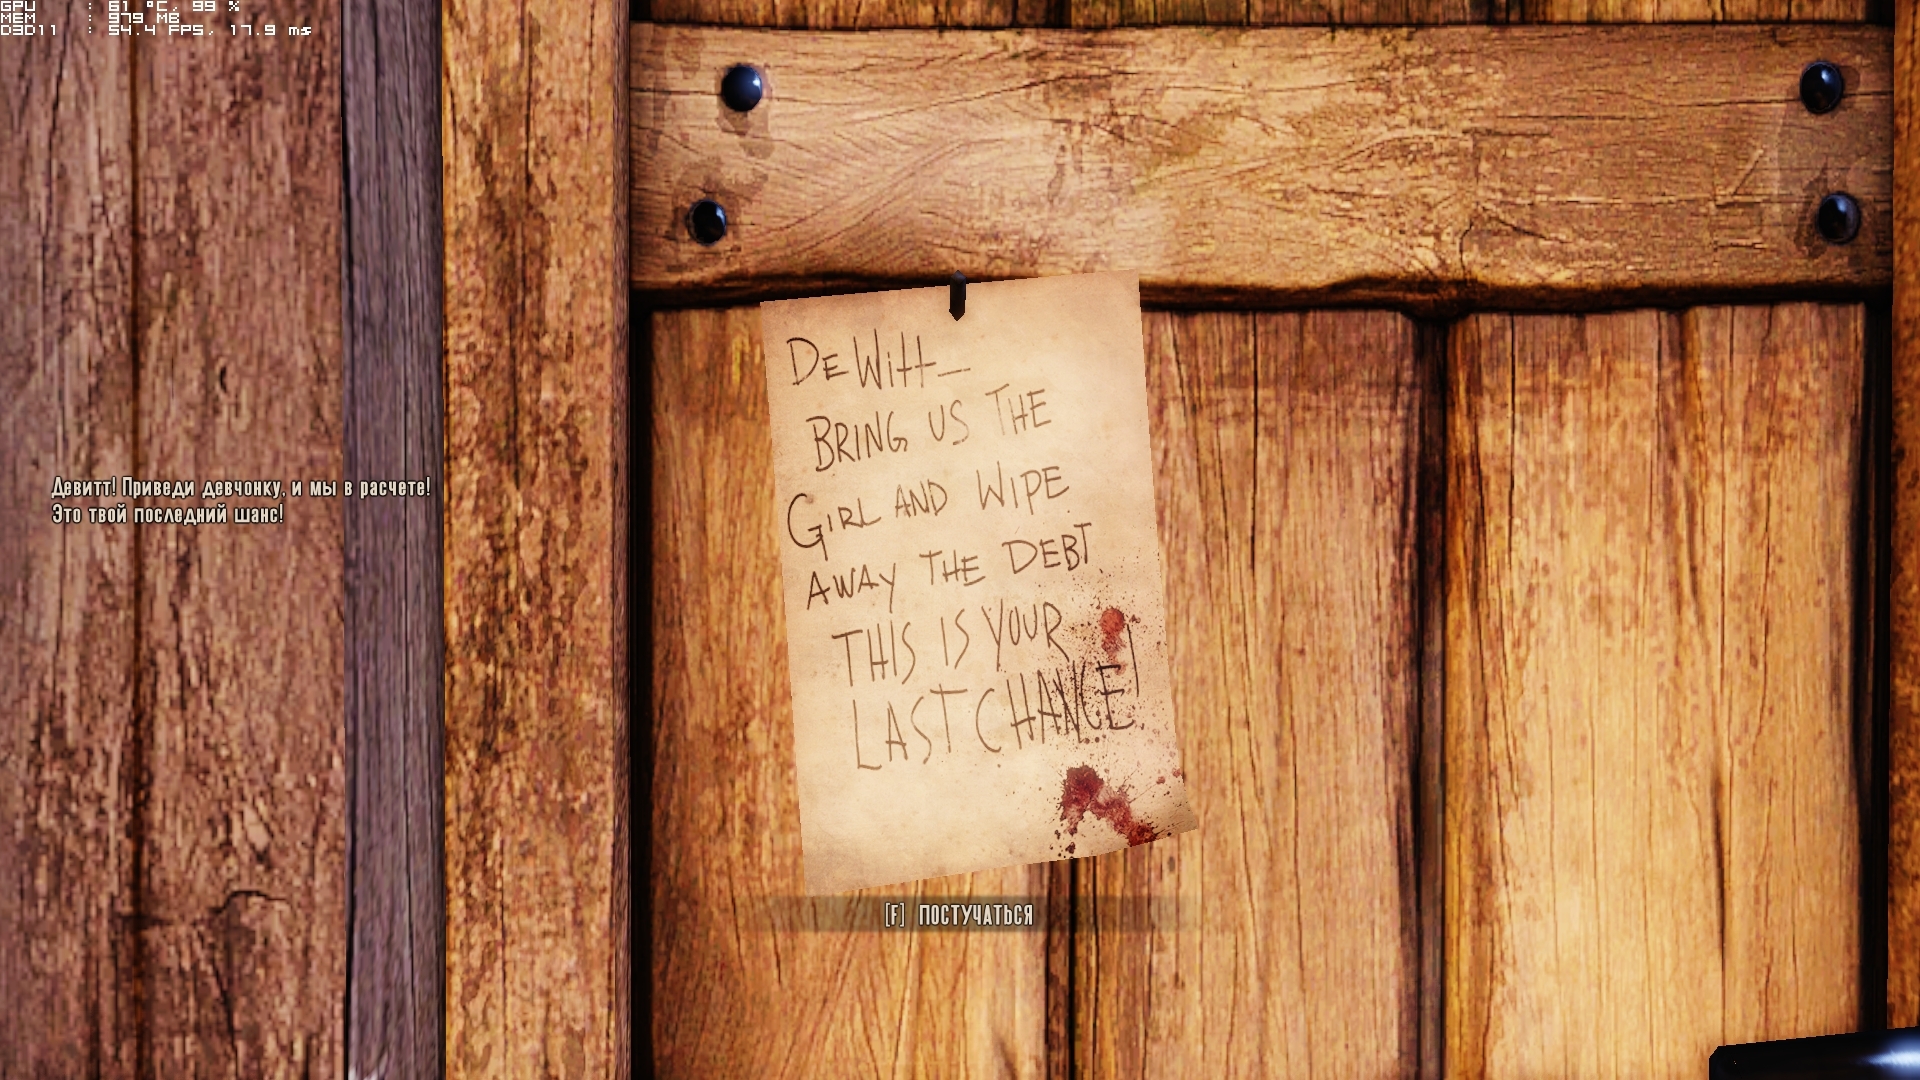 GPU : 61 °C, 99 %
MEM : 979 MB
D3D11 : 54.4 FPS, 17.9 ms
DEWitt_
BRING US THE
GIRL AND WIPE
AWAY THE DEBT.
THIS IS YOUR
LAST CHANCE!
Девитт! Приведи девчонку, и мы в расчете!
Это твой последний шанс!
[F] ПОСТУЧАТЬСЯ